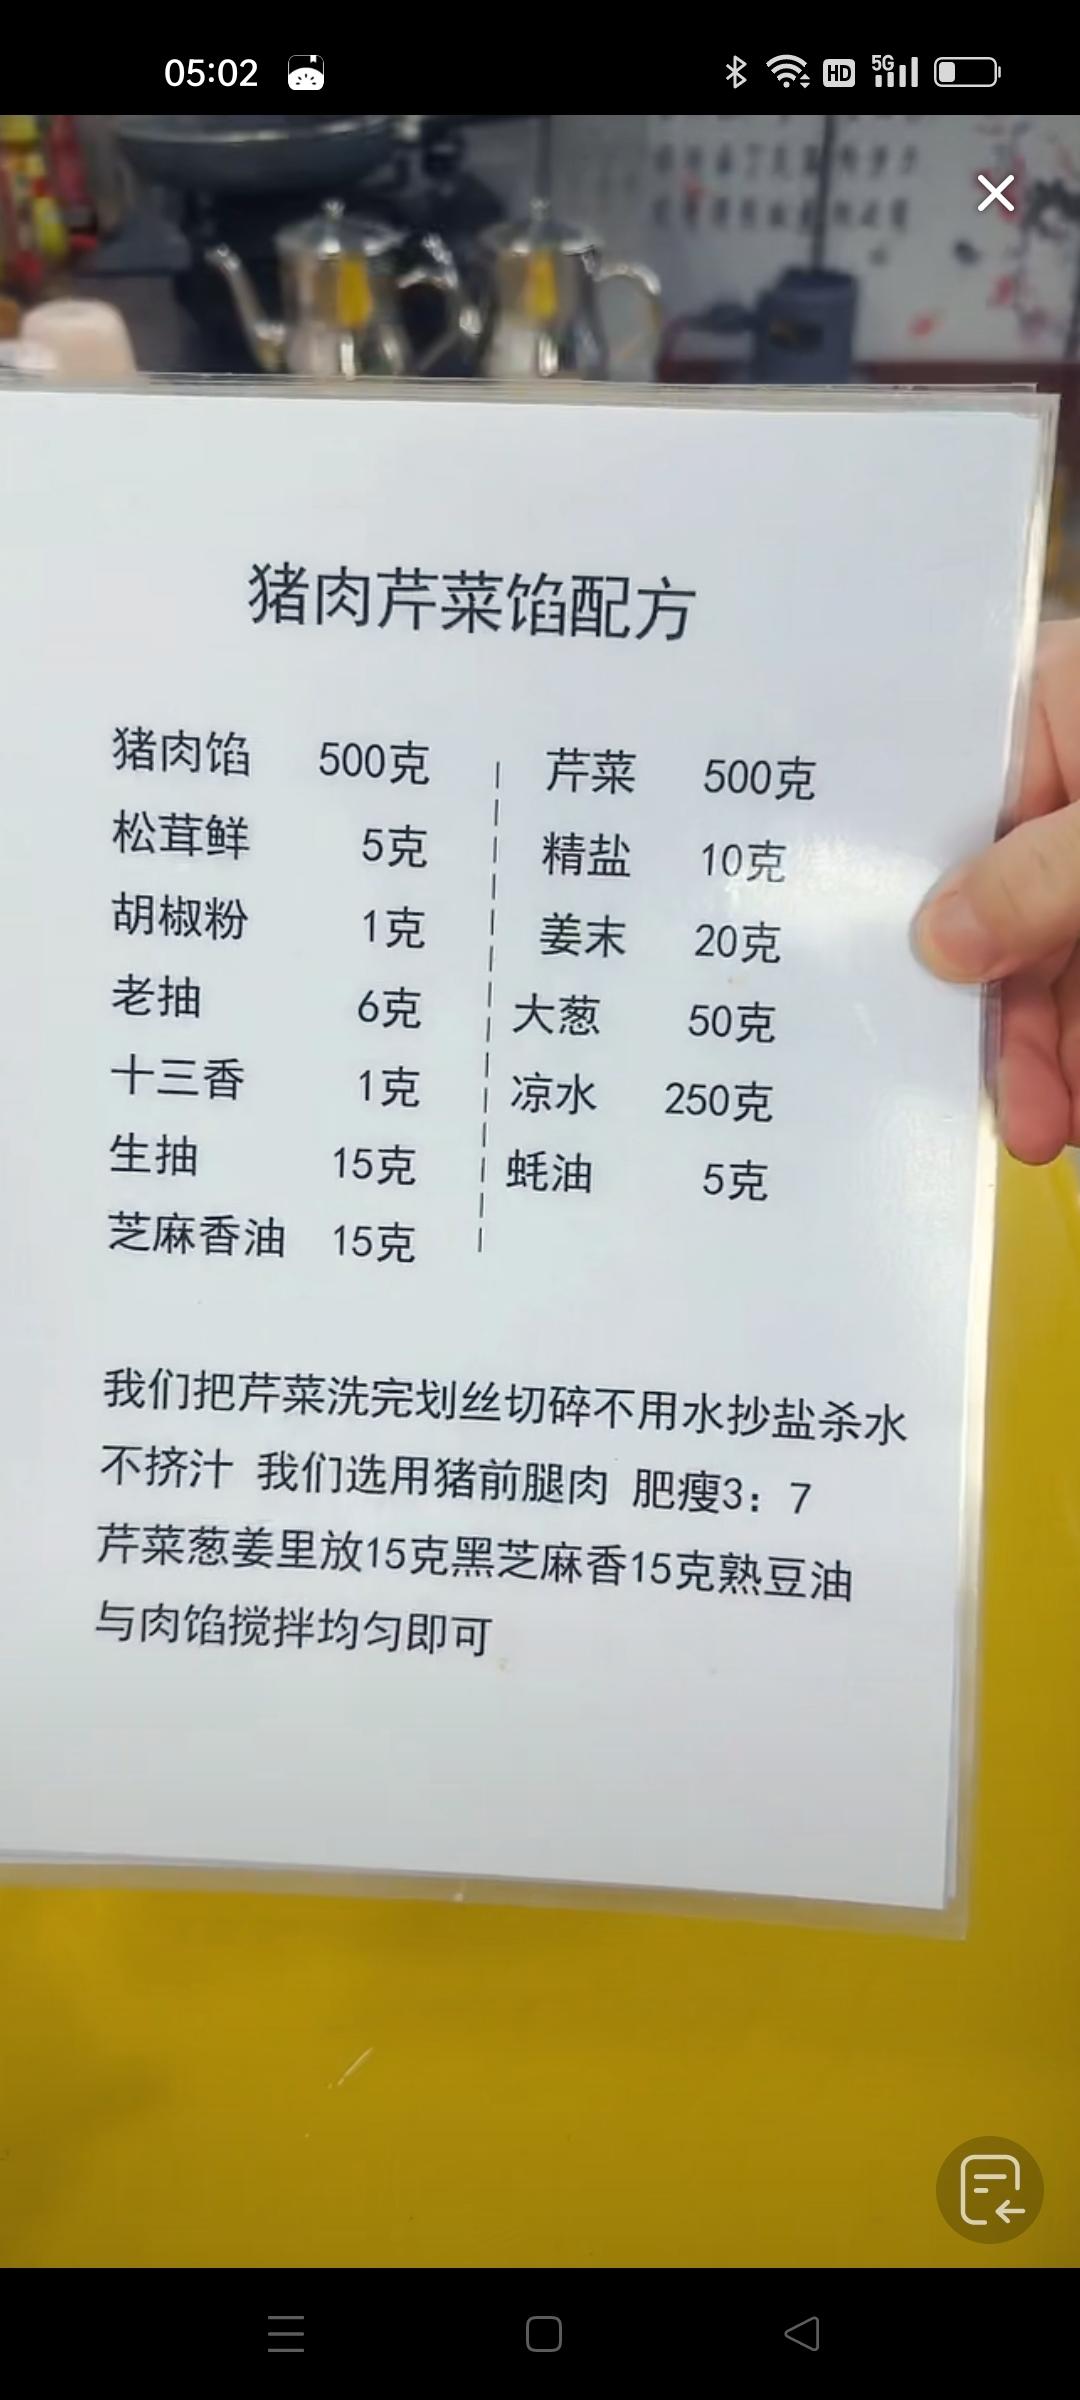 05:02
HD
5G
猪肉芹菜馅配方
猪肉馅 500克 芹菜 500克
松茸鲜 5克 精盐 10克
胡椒粉 1克 姜末 20克
老抽 6克 大葱 50克
十三香 1克 凉水 250克
生抽 15克 蚝油 5克
芝麻香油 15克
我们把芹菜洗完划丝切碎不用水抄盐杀水
不挤汁 我们选用猪前腿肉 肥瘦3：7
芹菜葱姜里放15克黑芝麻香15克熟豆油
与肉馅搅拌均匀即可